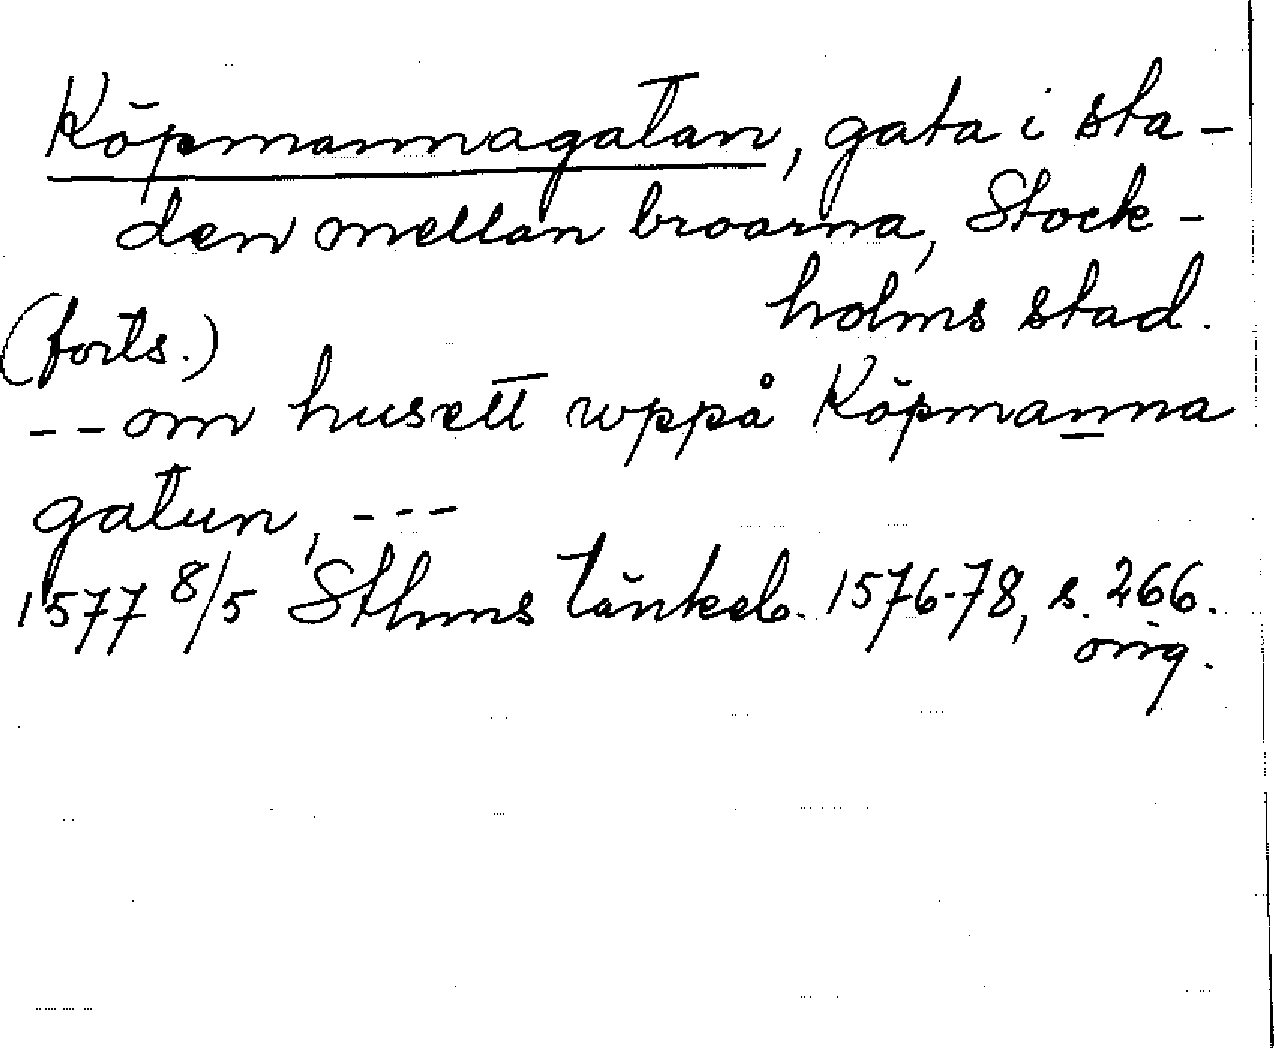 Köpmannagatan, gata i sta-
den mellan broarna, Stock-
holms stad.
(forts.)
-- om husett uppå Köpmanna
gatun, ---
1577 8/5 Sthms tänkeb. 1576-78, s. 266.
orig.